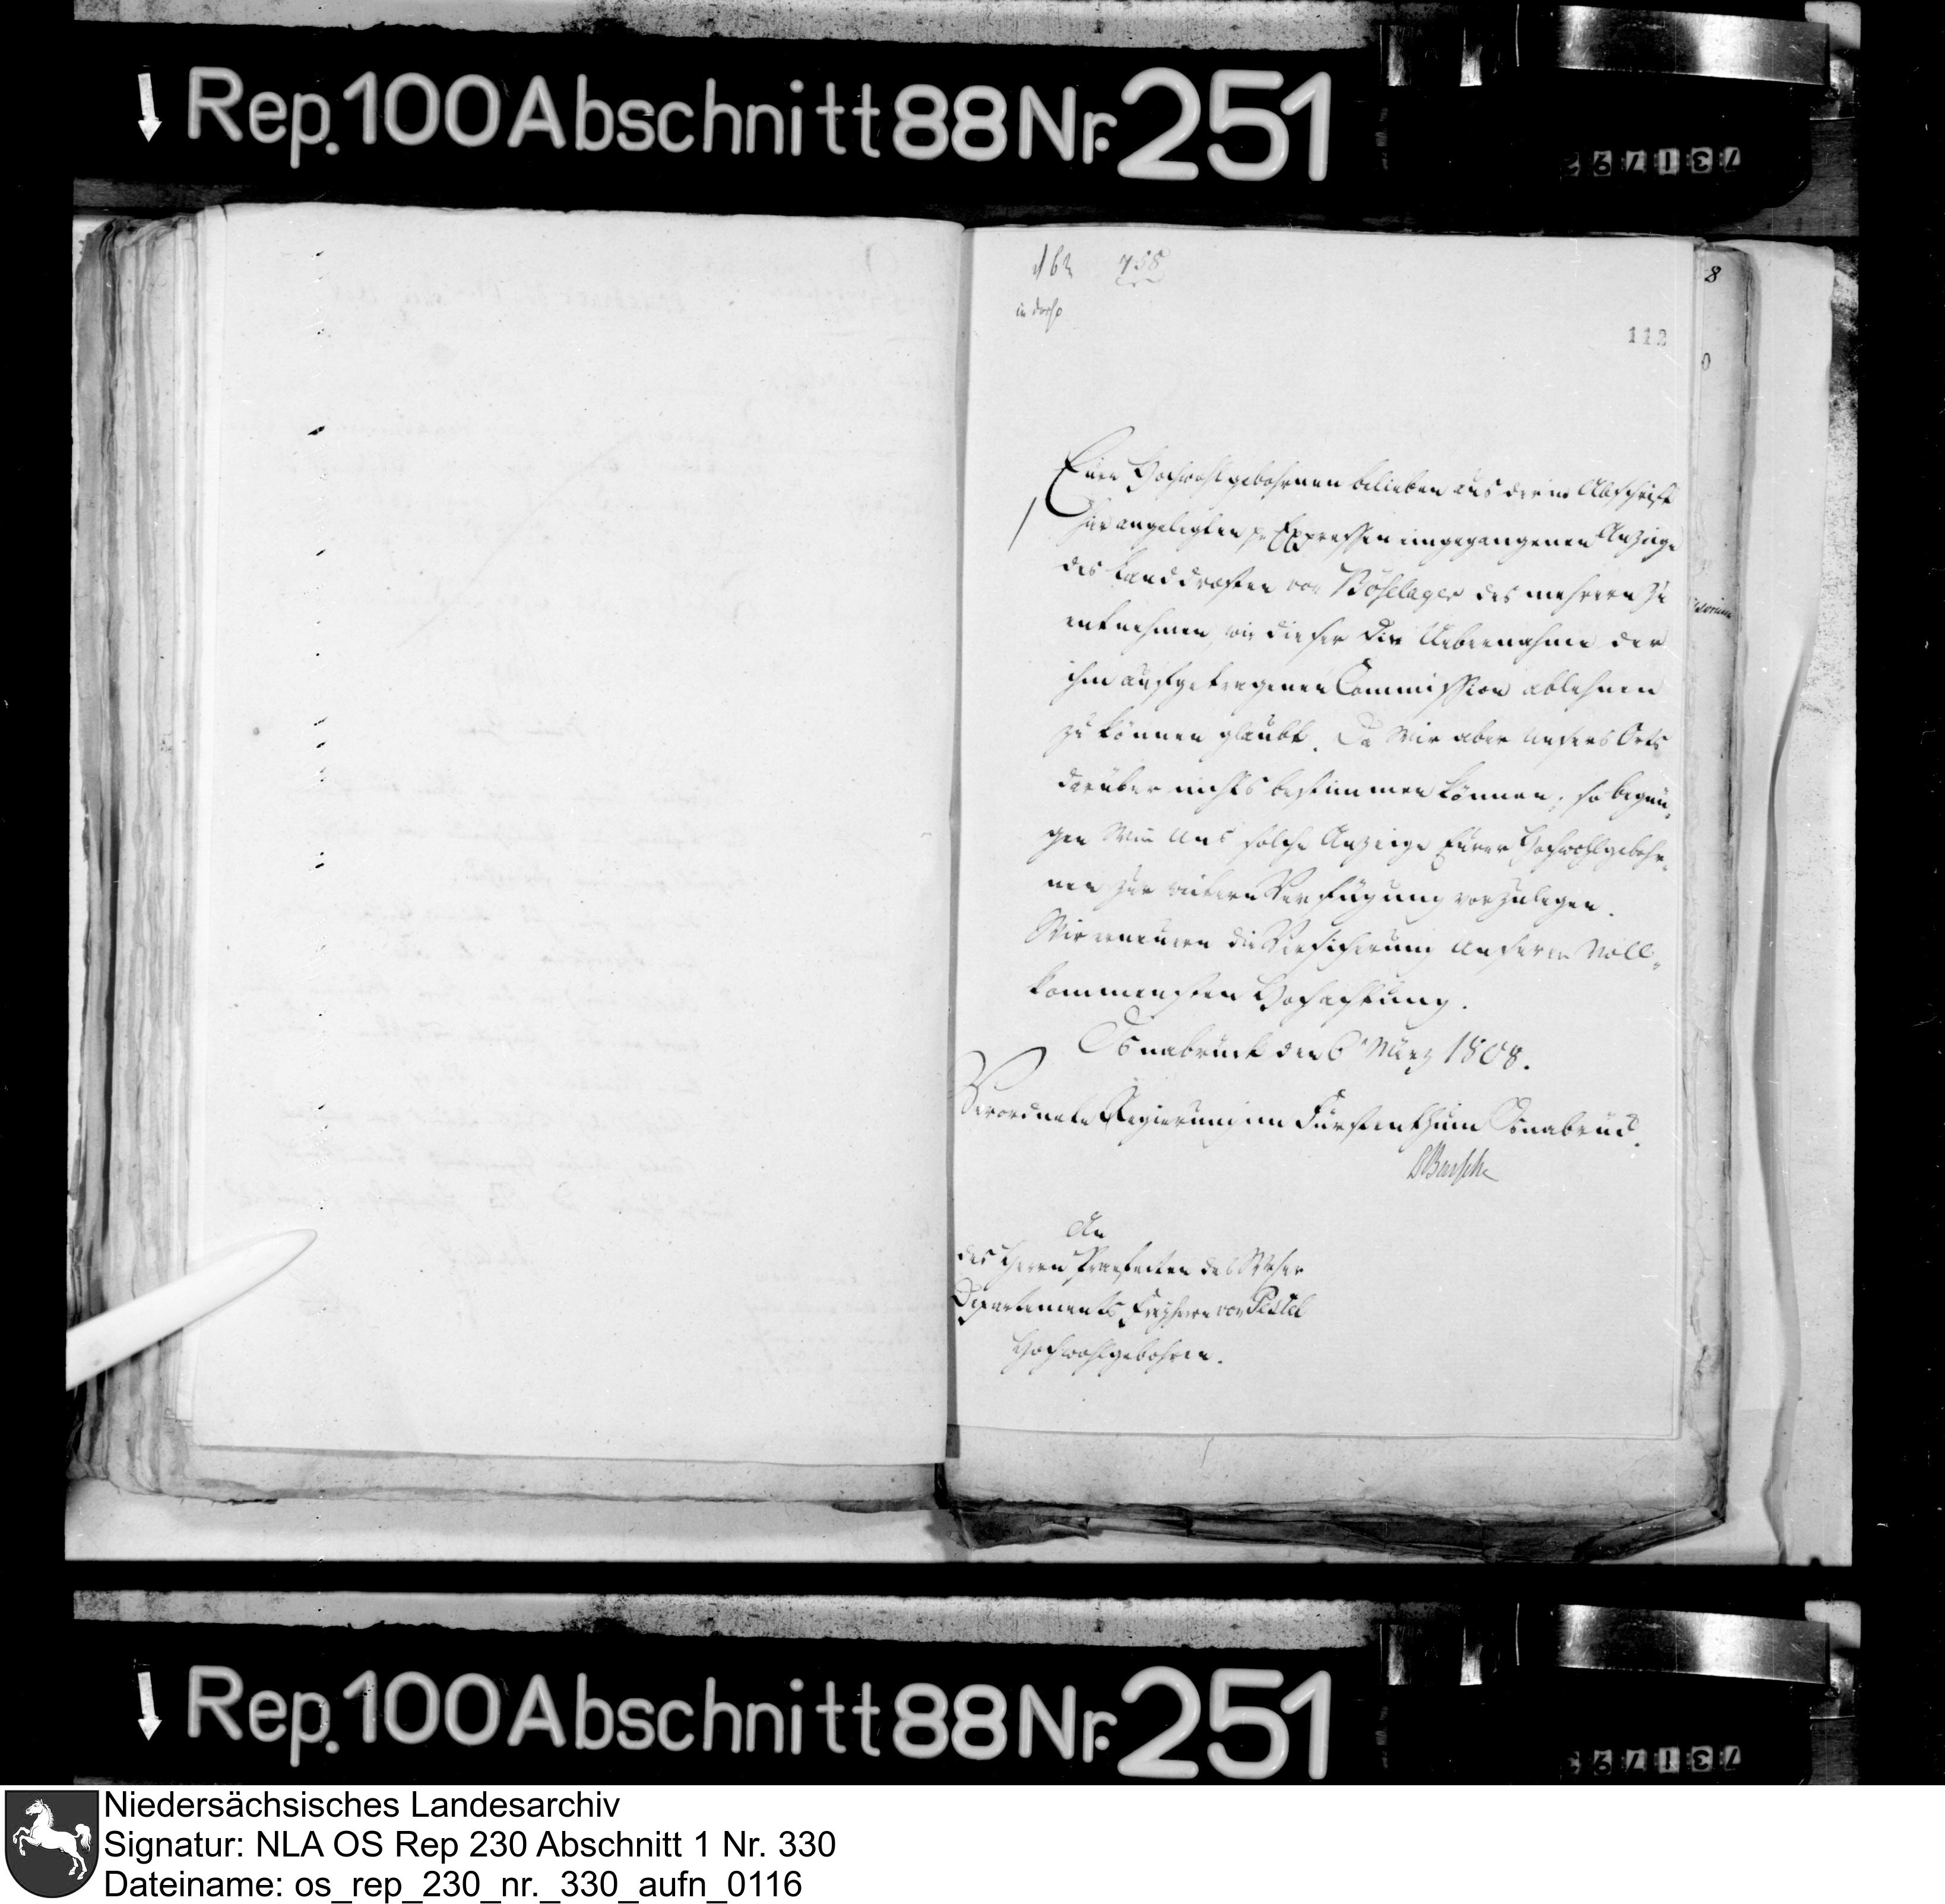 Rep. 100 Abschnitt 88 Nr. 251
162 758
in dorso
112
8
Eure Hochwohlgebohrnen belieben aus der in Abschrift
hier angelegten pr Expressen eingegangenen Anzeige
des Landdrosten von Böselager des mehreren zu
entnehmen, wie dieser die Uebernahme der
ihm aufgetragenen Commission ablehnen
zu können glaubt. Da Wir aber unsers Orts
darüber nichts bestimmen können; so begnü-
gen Wir uns solche Anzeige Eurer Hochwohlgebohr-
nen zur weitern Verfügung vorzulegen.
Wir erneuern die Versicherung unserer Voll-
kommensten Hochachtung.
Osnabrück den 6n März 1808.
Verordnete Regierung im Fürstenthum Osnabrück.
Bussche
An
des Herrn Praefecten des Weser
Departements, Freyherrn von Pestel
Hochwohlgebohren.
Rep. 100 Abschnitt 88 Nr. 251
Niedersächsisches Landesarchiv
Signatur: NLA OS Rep 230 Abschnitt 1 Nr. 330
Dateiname: os_rep_230_nr._330_aufn_0116